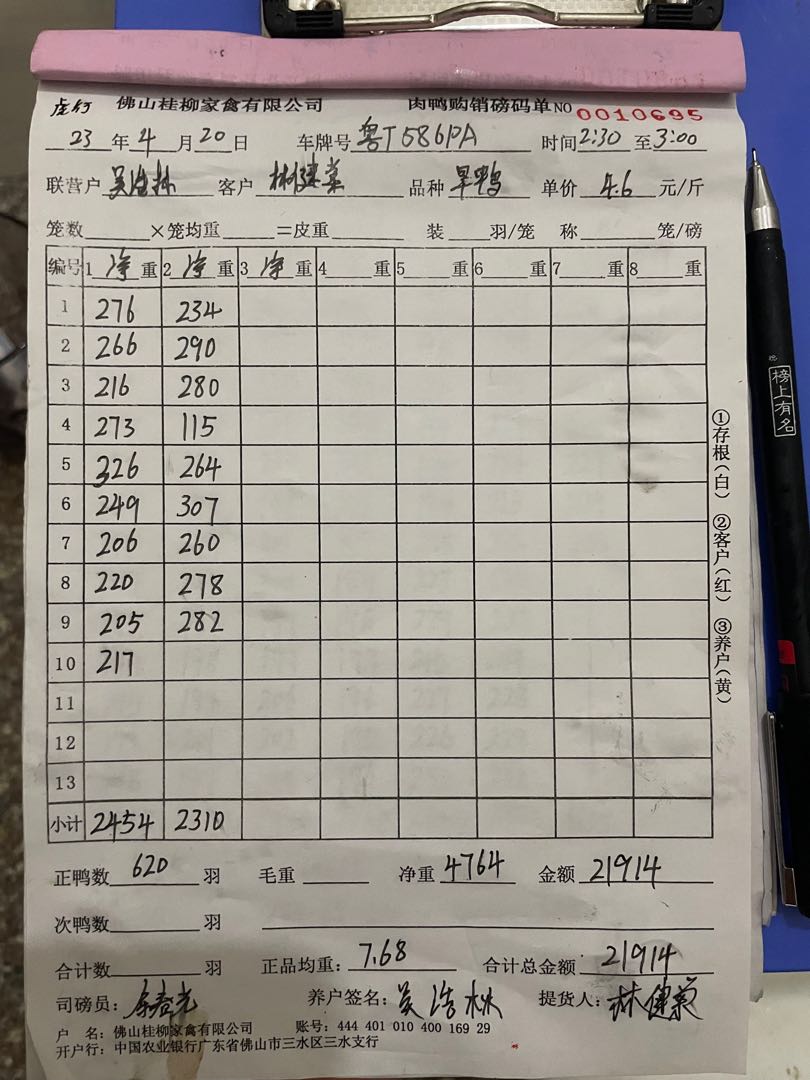 虎钉 佛山桂柳家禽有限公司 肉鸭购销磅码单 NO 0010695
23 年 4 月 20 日 车牌号 粤T586PA 时间 2:30 至 3:00
联营户 吴浩林 客户 林健菜 品种 旱鸭 单价 4.6 元/斤
笼数 ×笼均重 =皮重 装 羽/笼 称 笼/磅
编号 1 净 重 2 净 重 3 净 重 4 重 5 重 6 重 7 重 8 重
1 276 234
2 266 290
3 216 280
4 273 115
5 326 264
6 249 307
7 206 260
8 220 278
9 205 282
10 217
11
12
13
小计 2454 2310
正鸭数 620 羽 毛重 净重 4764 金额 21914
次鸭数 羽
合计数 羽 正品均重: 7.68 合计总金额 21914
司磅员: 养户签名: 吴浩林 提货人: 林健菜
户 名: 佛山桂柳家禽有限公司 账号: 444 401 010 400 169 29
开户行: 中国农业银行广东省佛山市三水区三水支行
①存根(白) ②客户(红) ③养户(黄)
榜上有名